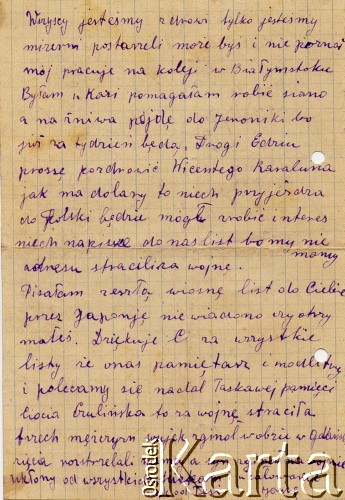 Wszyscy jesteśmy zdrowi tylko jesteśmy
mizerni postarzeli może byś i nie poznał
mój pracuje na koleji w Białymstoku
Byłam u Kazi pomagałam robić siano
a na żniwa pójdę do Jenoniki bo
już za tydzień będą, Drogi Edziu
proszę pozdrowić Wicentego Karaluna
jak ma dolary to niech przyjeżdza
do Polski będzie mógł zrobić interes
niech napisze do nas list bo my nie
mamy
adresu straciliśmy wojne.
Pisałam zeszłą wiosnę list do Ciebie
przez Japonje nie wiadomo czy otrzy
małeś. Dziękuje Ci za wszystkie
listy że o nas pamiętasz i modlitwę
i polecamy się nadal Łaskawej pamięci
Ciocia to za wojnę straciła
trzech mężczyzn wujek zginął w obozu w
rozstrzelali
ukłony od wszystkich
Ośrodek
Karta